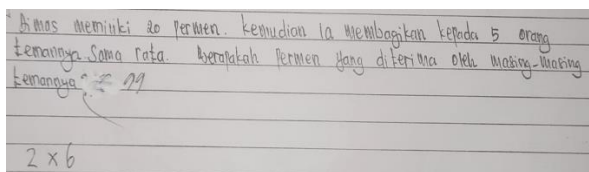 Bimas memiliki 20 permen. kemudian ia membagikan kepada 5 orang
temannya sama rata. Berapakah permen yang diterima oleh masing-masing
temannya?
2 x 6